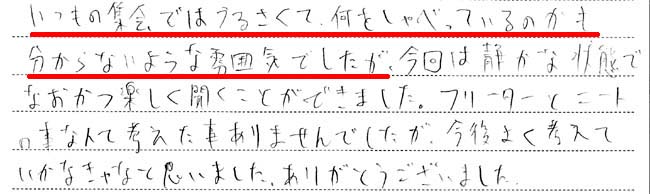 いつもの集会ではうるさくて、何をしゃべっているのかも
分からないような雰囲気でしたが、今回は静かな状態で
なおかつ楽しく聞くことができました。フリーターとニート
の事なんて考えた事ありませんでしたが、今後よく考えて
いかなきゃなと思いました。ありがとうございました。